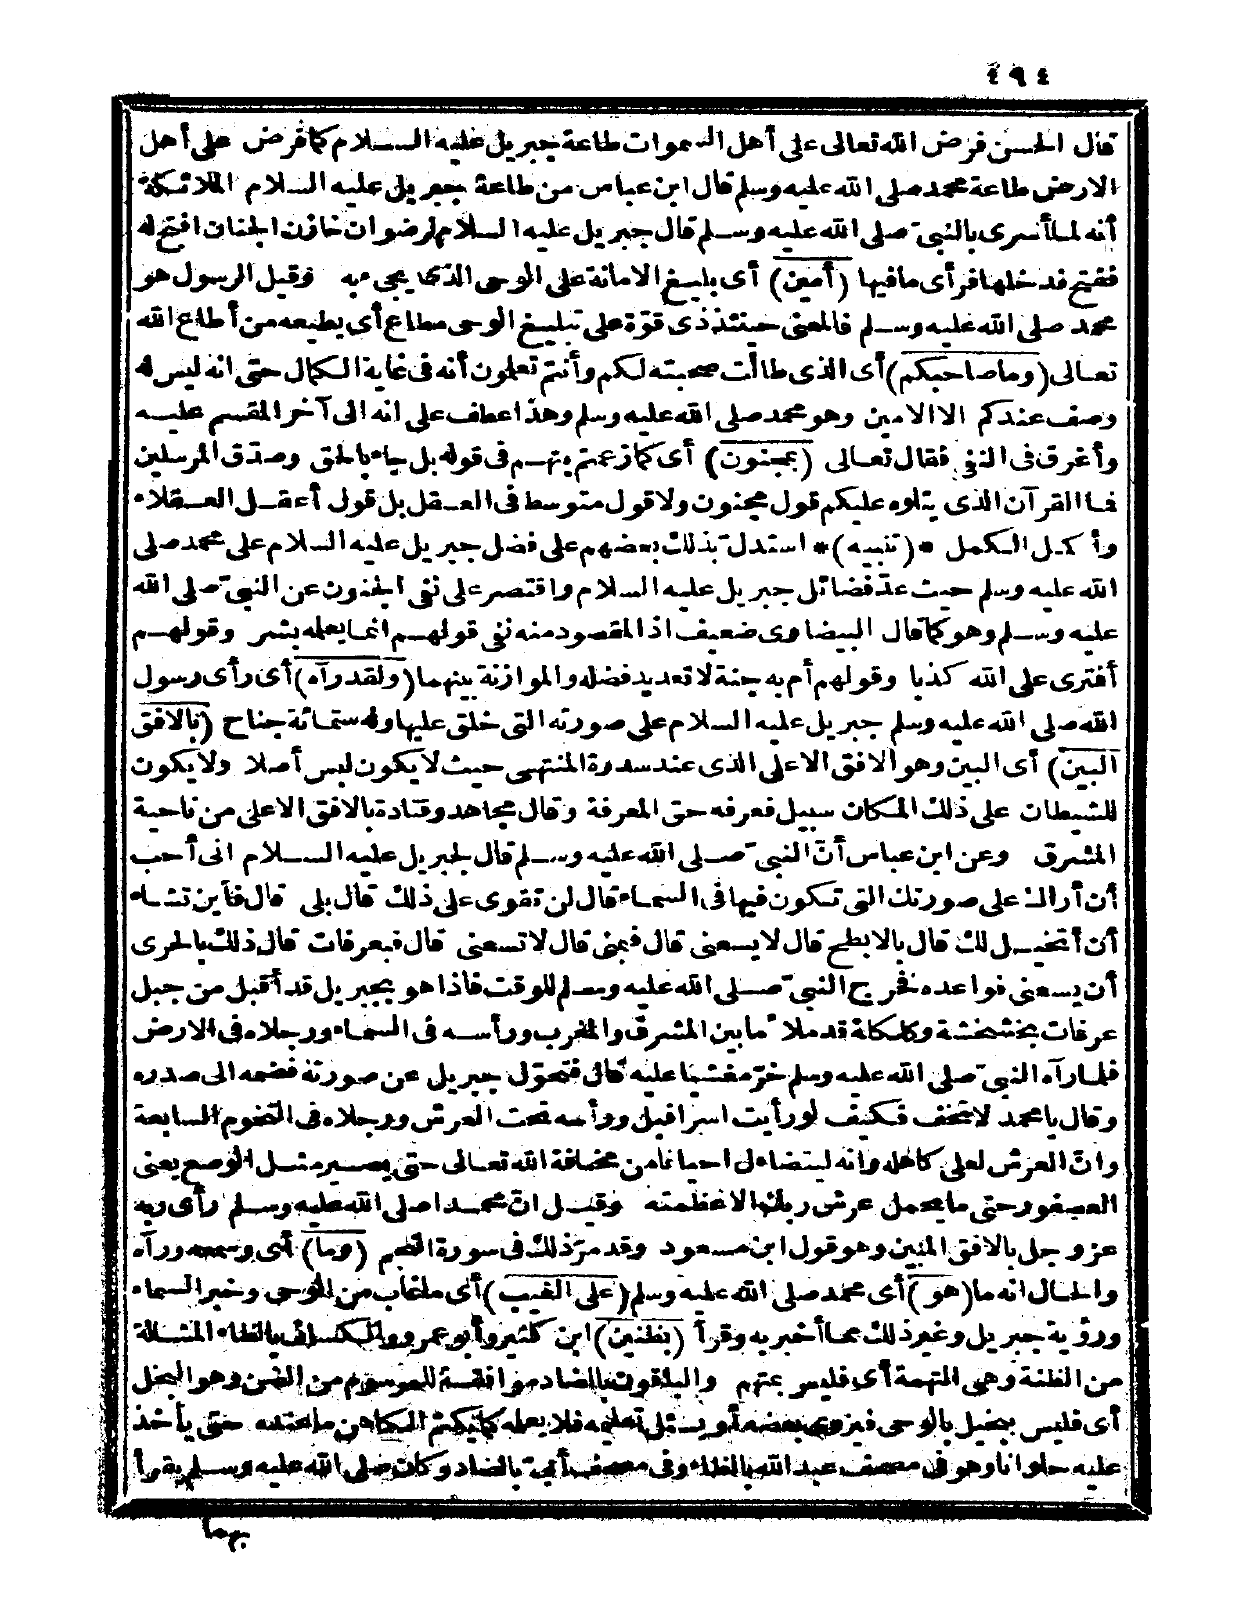 ٤٩٤
قال الحسن فرض الله تعالى على أهل السموات طاعة جبريل عليه السلام كما فرض على أهل
الارض طاعة محمد صلى الله عليه وسلم قال ابن عباس من طاعة جبريل عليه السلام الملائكة
أنه لما أسرى بالنبي صلى الله عليه وسلم قال جبريل عليه السلام لرضوان خازن الجنان افتح له
ففتح فدخلها فرأى ما فيها (أمين) أى بليغ الامانة على الوحى الذى يجىء به وقيل الرسول هو
محمد صلى الله عليه وسلم فالمعنى حينئذ ذى قوّة على تبليغ الوحى مطاع أى يطيعه من أطاع الله
تعالى (وما صاحبكم) أى الذى طالت صحبته لكم وأنتم تعلمون أنه فى غاية الكمال حتى انه ليس له
وصف عندكم الا الامين وهو محمد صلى الله عليه وسلم وهذا عطف على انه الى آخر المقسم عليه
وأغرق فى النفى فقال تعالى (بمجنون) أى كما زعمتم يتهم فى قوله بل جاء بالحق وصدّق المرسلين
فما القرآن الذى يتلوه عليكم قول مجنون ولا قول متوسط فى العقل بل قول أعقل العقلاء
وأكمل الكمل *(تنبيه)* استدل بذلك بعضهم على فضل جبريل عليه السلام على محمد صلى
الله عليه وسلم حيث عدّ فضائل جبريل عليه السلام واقتصر على نفى الجنون عن النبىّ صلى الله
عليه وسلم وهو كما قال البيضاوى ضعيف اذ المقصود منه نفى قولهم انما يعلمه بشر وقولهم
أفترى على الله كذبا وقولهم أم به جنة لا تعديد فضله والموازنة بينهما (ولقد رآه) أى رأى رسول
الله صلى الله عليه وسلم جبريل عليه السلام على صورته التى خلق عليها وله ستمائة جناح (بالافق
المبين) أى البين وهو الافق الاعلى الذى عند سدرة المنتهى حيث لا يكون لبس أصلا ولا يكون
للشيطان على ذلك المكان سبيل فعرفه حق المعرفة وقال مجاهد وقتادة بالافق الاعلى من ناحية
المشرق وعن ابن عباس أنّ النبىّ صلى الله عليه وسلم قال لجبريل عليه السلام انى أحب
أن أراك على صورتك التى تكون فيها فى السماء قال لن تقوى على ذلك قال بلى قال فأين تشاء
أن أتخيل لك قال بالابطح قال لا يسعنى قال فبمنى قال لا تسعنى قال فبعرفات قال ذلك بالحرى
أن يسعنى فواعده فخرج النبىّ صلى الله عليه وسلم للوقت فاذا هو بجبريل قد أقبل من جبل
عرفات بخشخشة وكلكلة قد ملأ ما بين المشرق والمغرب ورأسه فى السماء ورجلاه فى الارض
فلما رآه النبىّ صلى الله عليه وسلم خرّ مغشيا عليه قال فتحوّل جبريل عن صورته فضمه الى صدره
وقال يا محمد لا تخف فكيف لو رأيت اسرافيل ورأسه تحت العرش ورجلاه فى التخوم السابعة
وانّ العرش لعلى كاهله وانه ليتضاءل احيانا من مخافة الله تعالى حتى يصير مثل الوصع يعنى
العصفور حتى ما يحمل عرش ربك الا عظمته وقيل انّ محمدا صلى الله عليه وسلم رأى ربه
عز وجل بالافق المبين وهو قول ابن مسعود وقد مرّ ذلك فى سورة النجم (وما) أى وسمعه ورآه
والحال انه ما (هو) أى محمد صلى الله عليه وسلم (على الغيب) أى ما غاب من الوحى وخبر السماء
ورؤية جبريل وغير ذلك مما أخبر به وقرأ (بظنين) ابن كثير وأبو عمرو والكسائى بالظاء المشالة
من الظنة وهى التهمة أى فليس بمتهم والباقون بالضاد موافقة للمرسوم من الضن وهو البخل
أى فليس ببخيل بالوحى فيزوى بعضه أو يسئل تعليمه فلا يعلمه كما يكتم الكاهن ما عنده حتى يأخذ
عليه حلوانا وهو فى مصحف عبد الله بالظاء وفى مصحف أبىّ بالضاد وكان صلى الله عليه وسلم يقرأ
بهما